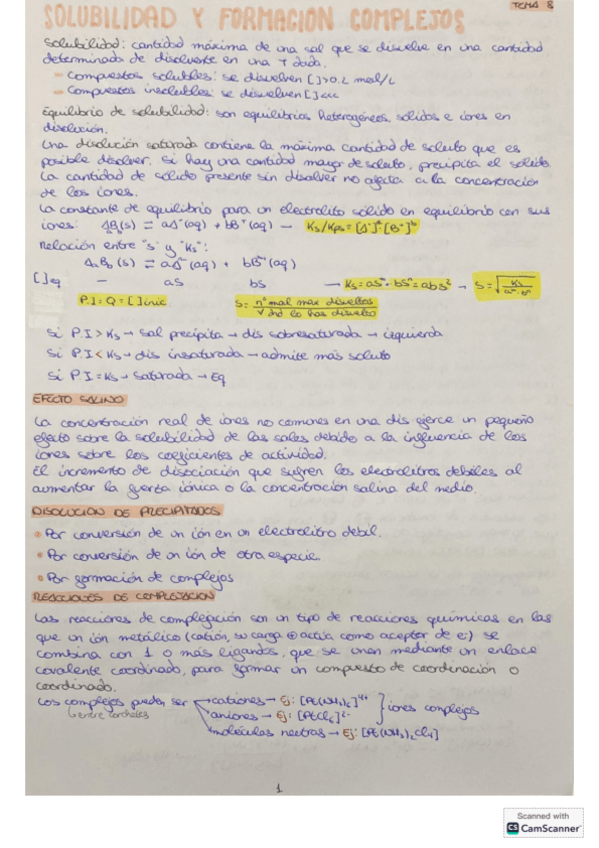 TEMA 8
SOLUBILIDAD Y FORMACIÓN COMPLEJOS
Solubilidad: cantidad máxima de una sal que se disuelve en una cantidad
determinada de disolvente en una T dada.
- Compuestos solubles: se disuelven [ ]>0.2 mol/L
- Compuestos insolubles: se disuelven [ ]<<<
Equilibrio de solubilidad: son equilibrios heterogéneos, sólidos e iones en
disolución.
Una disolución saturada contiene la máxima cantidad de soluto que es
posible disolver. Si hay una cantidad mayor de soluto, precipita el sólido.
La cantidad de sólido presente sin disolver no afecta a la concentración
de los iones.
La constante de equilibrio para un electrolito sólido en equilibrio con sus
iones: AaBb(s) ⇌ aA⁻(aq) + bB⁺(aq) → Ks/Kps = [A⁻]ᵃ[B⁺]ᵇ
Relación entre "s" y "Ks":
AaBb(s) ⇌ aA⁻(aq) + bB⁺(aq)
[ ]eq - as bs → Ks =
P.I = Q = [ ]inic
Si P.I > Ks → sal precipita → dis sobresaturada → izquierda
Si P.I < Ks → dis insaturada → admite más soluto
Si P.I = Ks → saturada → Eq
EFECTO SALINO
La concentración real de iones no comunes en una dis ejerce un pequeño
efecto sobre la solubilidad de las sales debido a la influencia de los
iones sobre los coeficientes de actividad.
El incremento de disociación que sufren los electrolitros débiles al
aumentar la fuerza iónica o la concentración salina del medio.
DISOLUCIÓN DE PRECIPITADOS
• Por conversión de un ión en un electrolitro debil.
• Por conversión de un ión de otra especie.
• Por formación de complejos
REACCIONES DE COMPLEJACION
Las reacciones de complejación son un tipo de reacciones químicas en las
que un ión metálico (catión, su carga ⊕ actúa como aceptor de e⁻) se
combina con 1 o más ligandos, que se unen mediante un enlace
covalente coordinado, para formar un compuesto de coordinación o
coordinado.
Los complejos pueden ser → cationes → Ej: [Pt(NH₃)₆]⁴⁺
entre corchetes → aniones → Ej: [PtCl₆]²⁻ } iones complejos
→ moléculas neutras → Ej: [Pt(NH₃)₂Cl₄]
1
Scanned with
CS CamScanner